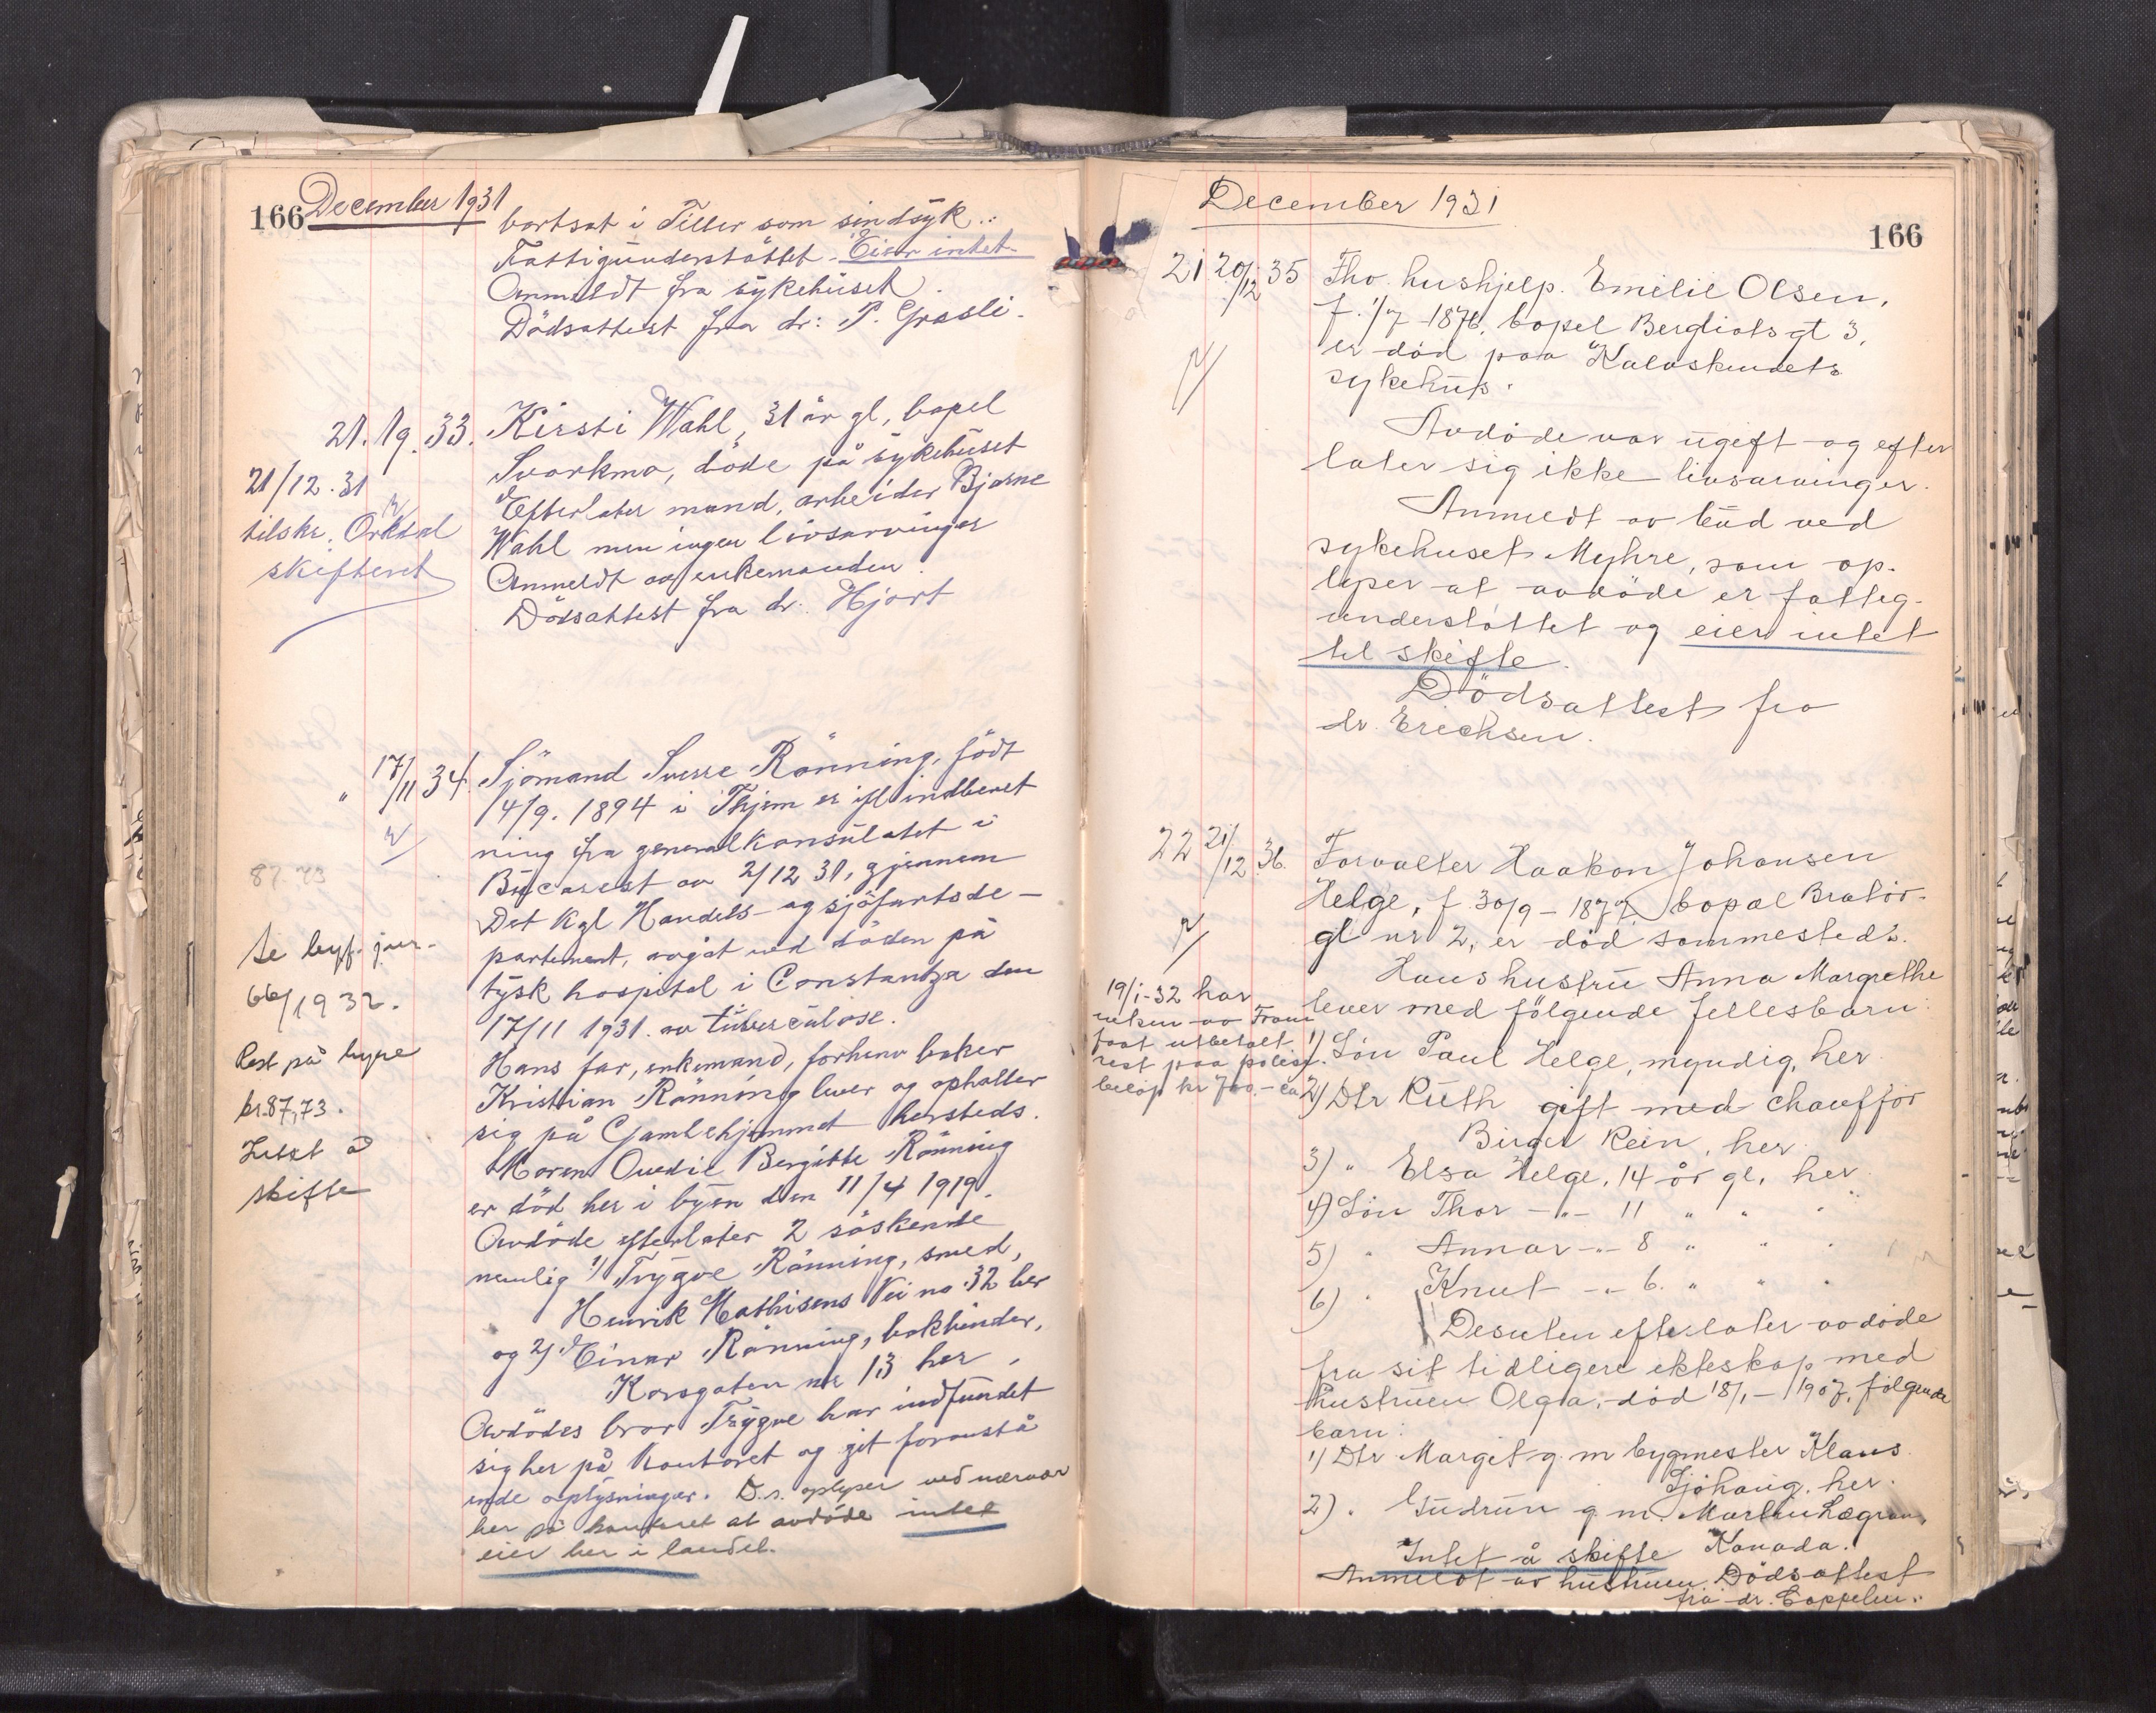 166 December 1931
bortsat i Tiller som sindsyk.
Fattigunderstöttet. Eier intet
Anmeldt fra sykehuset.
Dödsattest fra dr: P. Grasli.
21. 19. 33. Kirsti Wahl, 31 år gl, bopel
Svorkmo, döde på sykehuset
Efterlater mand, arbeider Bjarne
Wahl men ingen livsarvinger
Anmeldt av enkemanden.
Dödsattest fra dr. Hjort
21/12.31
tilskr. Orkdal
skifteret
" 17/11 34. Sjömand Sverre Rönning, födt
14/9. 1894 i Thjem er ifl indberet
ning fra generalkonsulatet i
Bucarest av 2/12 31, gjennem
Det Kgl Handels- og sjöfartsde-
partement, avgåt ved döden på
tysk hospital i Constantza den
17/11 1931. av tuberculose.
Hans far, enkemand, forhenv baker
Kristian Rönning lever og opholler
sig på Gamlehjemmet hersteds.
Moren Ovedie Bergitte Rönning
er död her i byen den 11/4 1919.
Avdöde efterlater 2 söskende
nemlig 1) Trygve Rönning, smed,
Henrik Mathisens Vei no 32 her
og 2) Einar Rönning, bokbinder,
Korsgaten nr 13 her.
Avdödes bror Trygve har indfundet
sig her på Kontoret og git foranstå
ende oplysninger. D.s. oplyser ved nærvær
her på kontoret at avdöde intet
eier her i landet.
87.73
Se byf. jur-
66/1932.
Rest på hyre
kr. 87,73.
Intet å
skifte
December 1931
166
21 20/12 35 Fhv. hushjelp. Emilie Olsen,
f. 1/7-1876, bopel Bergliotsgt 3,
er död paa Kalvskindets
sykehus.
Avdöde var ugift og efter
later sig ikke livsarvinger.
Anmeldt av bud ved
sykehuset Myhre, som op-
lyser at avdöde er fatteg-
understöttet og eier intet
til skifte.
Dödsattest fra
dr. Erichsen.
22 21/12 36. Forvalter Haakon Johansen
Helge, f. 30/9-1877, bopæl Bratör-
gt nr 2, er död sammesteds.
Hans hustru Anna Margrethe
lever med fölgende fellesbarn:
1) Sön Paul Helge, myndig, her.
2) Dtr Ruth gift med chaufför
Birger Rein, her.
3) " Elsa Helge, 14 år gl, her
4) Sön Thor -"- 11 " " "
5) " Annar -"- 8 " " "
6) " Knut -"- 6. " " "
Desuten efterlater avdöde
fra sit tidligere ekteskap med
hustruen Olga, död 18/1-1907, fölgende
barn:
1) Dtr Margit g. m bygmester Klaus
Sjöhaug, her.
2) " Gudrun g. m. Martin
Kanada.
Intet å skifte
Anmeldt av hustruen. Dödsattest
fra dr. Cappelen.
19/1-32 har
enken av Fram
faat utbetalt
rest paa polise
belöp kr 700.- ca